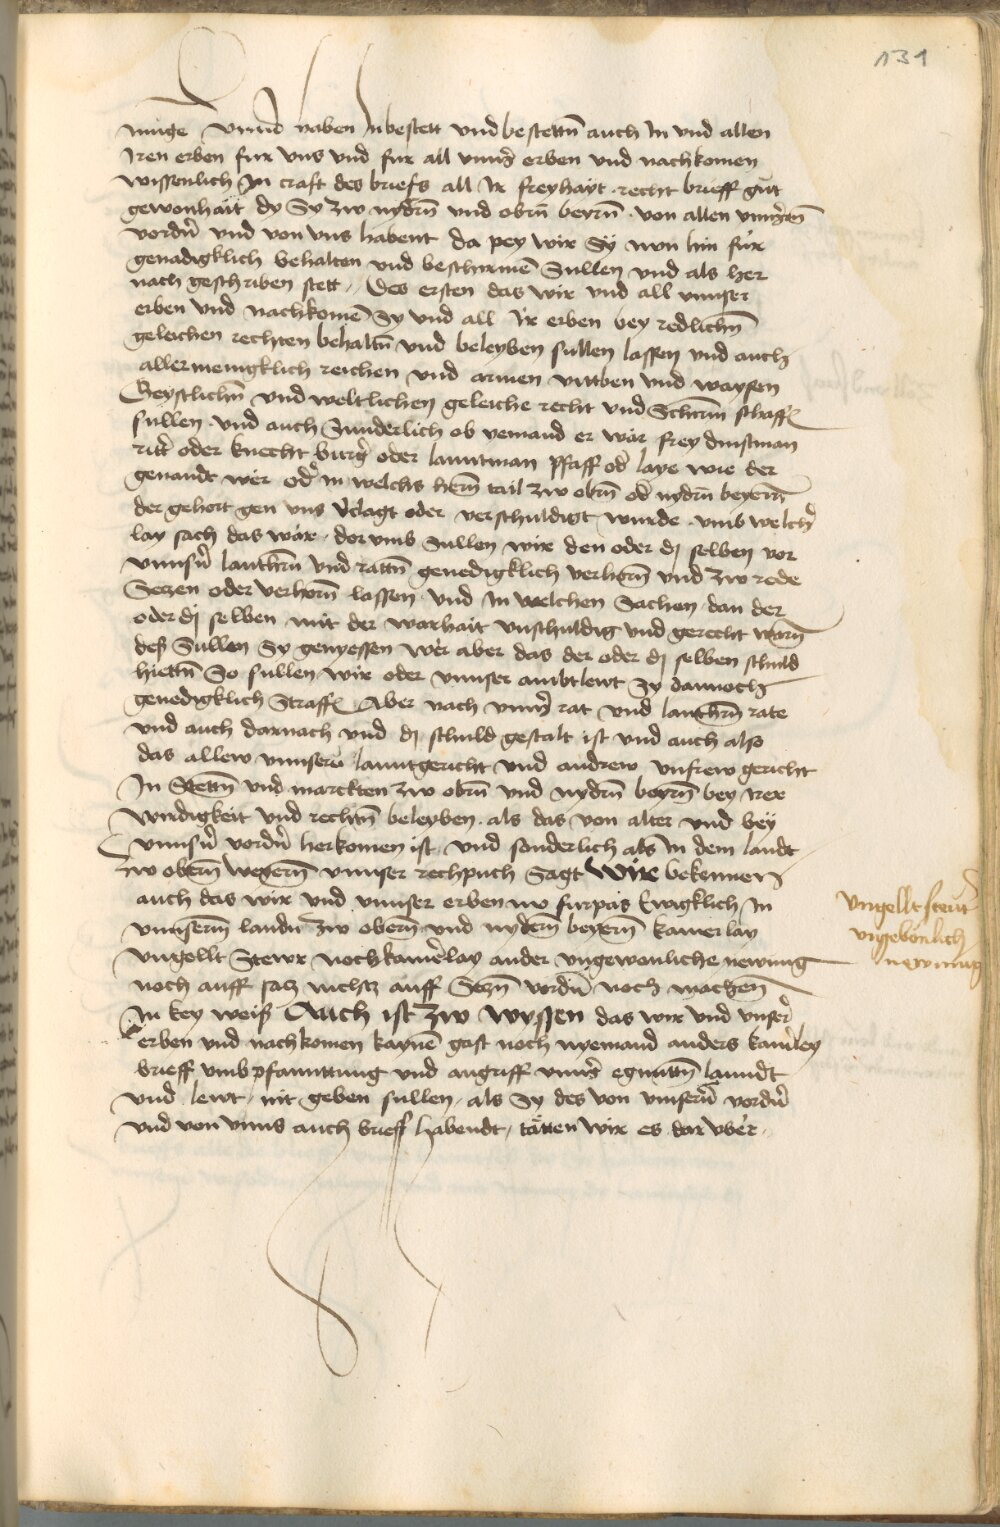 131
nunge vnnd haben In bestett vnd bestettn̄ auch In vnd allen
Iren erben fur vns vnd fur all vnns̄ erben vnd nachkomen
wissenlich In craft des briefs all Ir freyhait recht brieff gůt
gewonhait dy Sy zw nydrn̄ vnd obrn̄ beyrn̄ von allen vnns̄en̄
vordn̄ vnd von vns habent da pey wir Sÿ nun hin für
genadigklich behalten vnd beschirmē Sullen vnd als her
nach geschriben stett, Des ersten das wir vnd all vnnser
erben vnd nachkomē Sy vnd all Ir erben bey redlichn̄
geleichen rechten behaltn̄ vnd beleyben sullen lassen vnd auch
allermenigklich reichen vnd armen wittben vnd waysen
Geystlichn̄ vnd weltlichen geleiche recht vnd Schirm schaffn̄
sullen. vnd auch Sunderlich ob yemand er wär frey dinstman
ritt̄ oder knecht burḡ oder lanntman pfaff od̄ laye wie der
genandt wer od̄ in welchs hern̄ tail zw obrn̄ od̄ nydrn̄ beyern̄
der gehort gen vns v̄clagt oder verschuldigt wurde vmb welch̄
lay sach das wär. dorumb Sullen wir den oder dj selben vor
vnnsn̄ lanthrn̄ vnd rattn̄ genedigklich verhorn̄ vnd zw rede
Setzen oder verhorn̄ lassen. vnd In welchen Sachen dan der
oder dj selben mit der warhait vnschuldig vnd gerecht warn̄
des Sullen Sy genyessen wer aber das der oder dj selben schuld
hiettn̄ So sullen wir oder vnnser ambtlewt Sy dannoch
genedigklich Straffn̄ Aber nach vnns̄ rat vnd lanthrn̄ rate
vnd auch darnach vnd dj schuld gestalt ist vnd auch also
das allew vnnserew lanntgericht vnd andrew vnsrew gericht
In Stettn̄ vnd marckten zw obrn̄ vnd nydrn̄ beyrn̄ bey irer
wirdigkeit vnd rechtn̄ beleyben als das von alter vnd beÿ
vnnsn̄ vordn̄ herkomen ist vnd sonderlich als In dem landt
zw obern̄ beyern̄ vnnser rechpuch Sagt Wir bekennen
auch das wir vnd vnnser erben nw furpas Ewigklich In
vnnsern̄ landn̄ zw obern̄ vnd nydern̄ beyern̄ kainerlay
vngellt Stewr noch kainerlay ander vngewonliche newung
noch auff satz nichtz auff Setzn̄ vordn̄ noch machen̄
In key weiß Auch ist zw wyssen das wir vnd vnser̄
erben vnd nachkomen kaynē gast noch nyemand anders kain̄ley
brieff vmb pfanntung vnd angriff vnns̄ egnantn̄ lanndt
vnd lewt, nit geben sullen, als Sy des von vnnsern̄ vordn̄
vnd von vnns auch brieff habendt, tätten wir es dar vber
vngellt steur
vngebonlich
newnung